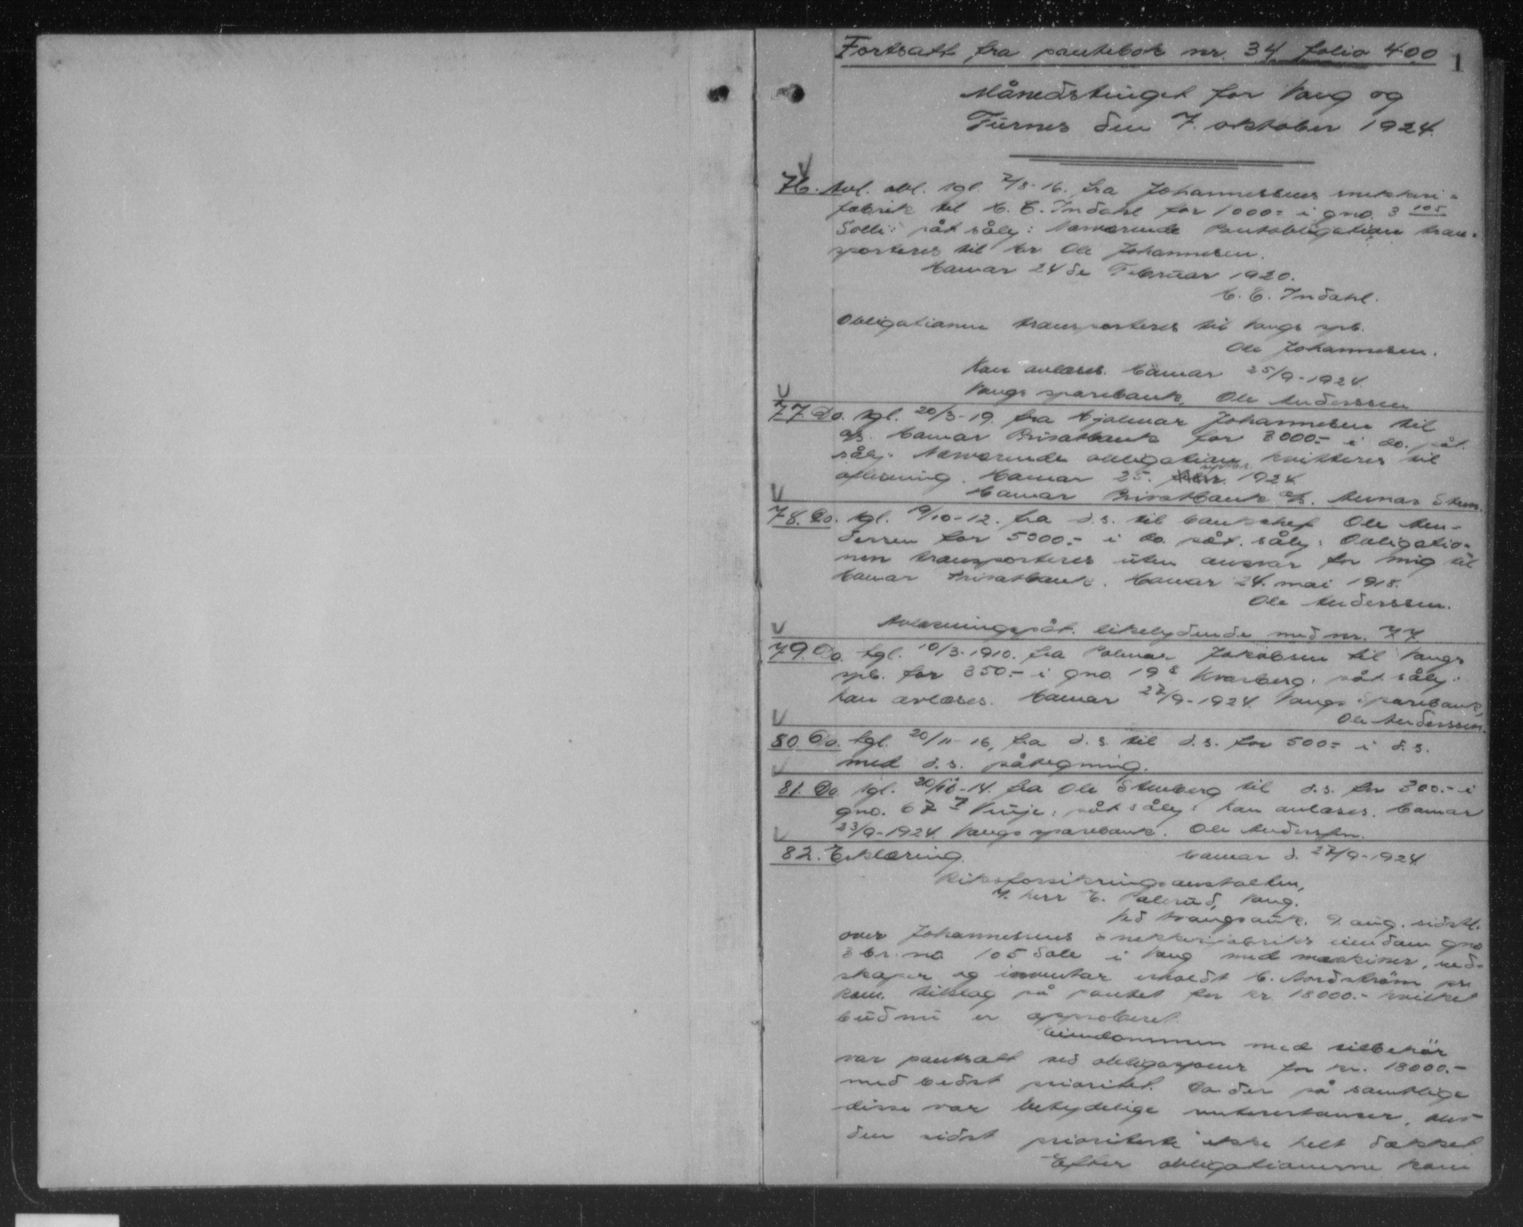 Fortsatt fra pantebok nr. 34 folio 400
1
Månedstinget for Vang og
Furnes den 7. oktober 1924.
76. Avl. obl. tgl. 2/8-16. fra Johannessens snekkeri-
fabrik til C. E. Indahl for 1000.- i gno. 3 105
påt. såly: Nærværende Pantobligation trans-
porteres til hr Ole Johannesen.
Hamar 24de Februar 1920.
C. E. Indahl.
Obligationen transporteres til Vangs spb.
Ole Johannesen.
Kan avlæses. Hamar 25/9-1924.
Vangs sparebank, Ole Anderssen
77. Do. tgl. 20/3-19. fra Hjalmar Johannesen til
a/s. Hamar Privatbank for 8000.- i do. påt.
sålj. Nærværende obligation kvitteres til
avlæsning. Hamar 25. septbr. 1924
Hamar Privatbank a/s.
78. Do. tgl. 9/10-12. fra d.s. til banksjef Ole An-
derssen for 5000.- i do. påt. sålj: Obligatio-
nen transporteres uten ansvar for mig til
Hamar Privatbank. Hamar 24. mai 1918.
Ole Anderssen.
Avlæsningspåt. likelydende med nr. 77.
79. Do. tgl. 10/3-1910. fra Jakobsen til Vangs
spb. for 350.- i gno. 19 8 Kvarberg. påt. sålj:
kan avlæses. Hamar 22/9-1924 Vangs Sparebank,
Ole Anderssen.
80. Do. tgl. 20/11-16, fra d.s. til d.s. for 500.- i d.s.
med d.s. påtegning.
81. Do. tgl. 20/10-14. fra Ole Stenberg til d.s. for 300.- i
gno. 67 7 påt sålj: kan avlæses. Hamar
23/9-1924. Vangs sparebank. Ole Anderssen.
82. Erklæring. Hamar d. 22/9-1924
Riksforsikringsanstalten,
v. herr E. Vang.
Ved tvangsauk. 9 aug. sidstl.
over Johannessens snekkerifabriks eiendom gno
3 br. no 105 i Vang med maskiner, red-
skaper og inventar erholdt C. Nordstrøm pr
kom. tilslag på pantet for kr 18000.- hvilket
bud nu er approberet.
Eiendommen med tilbehør
var pantsatt ved obligasjoner for kr. 18000.-
med bedst prioritet. Da der på samtlige
disse var betydelige renterestanser, blev
den sidst prioriterte ikke helt dækket
Efter obligationerne kom